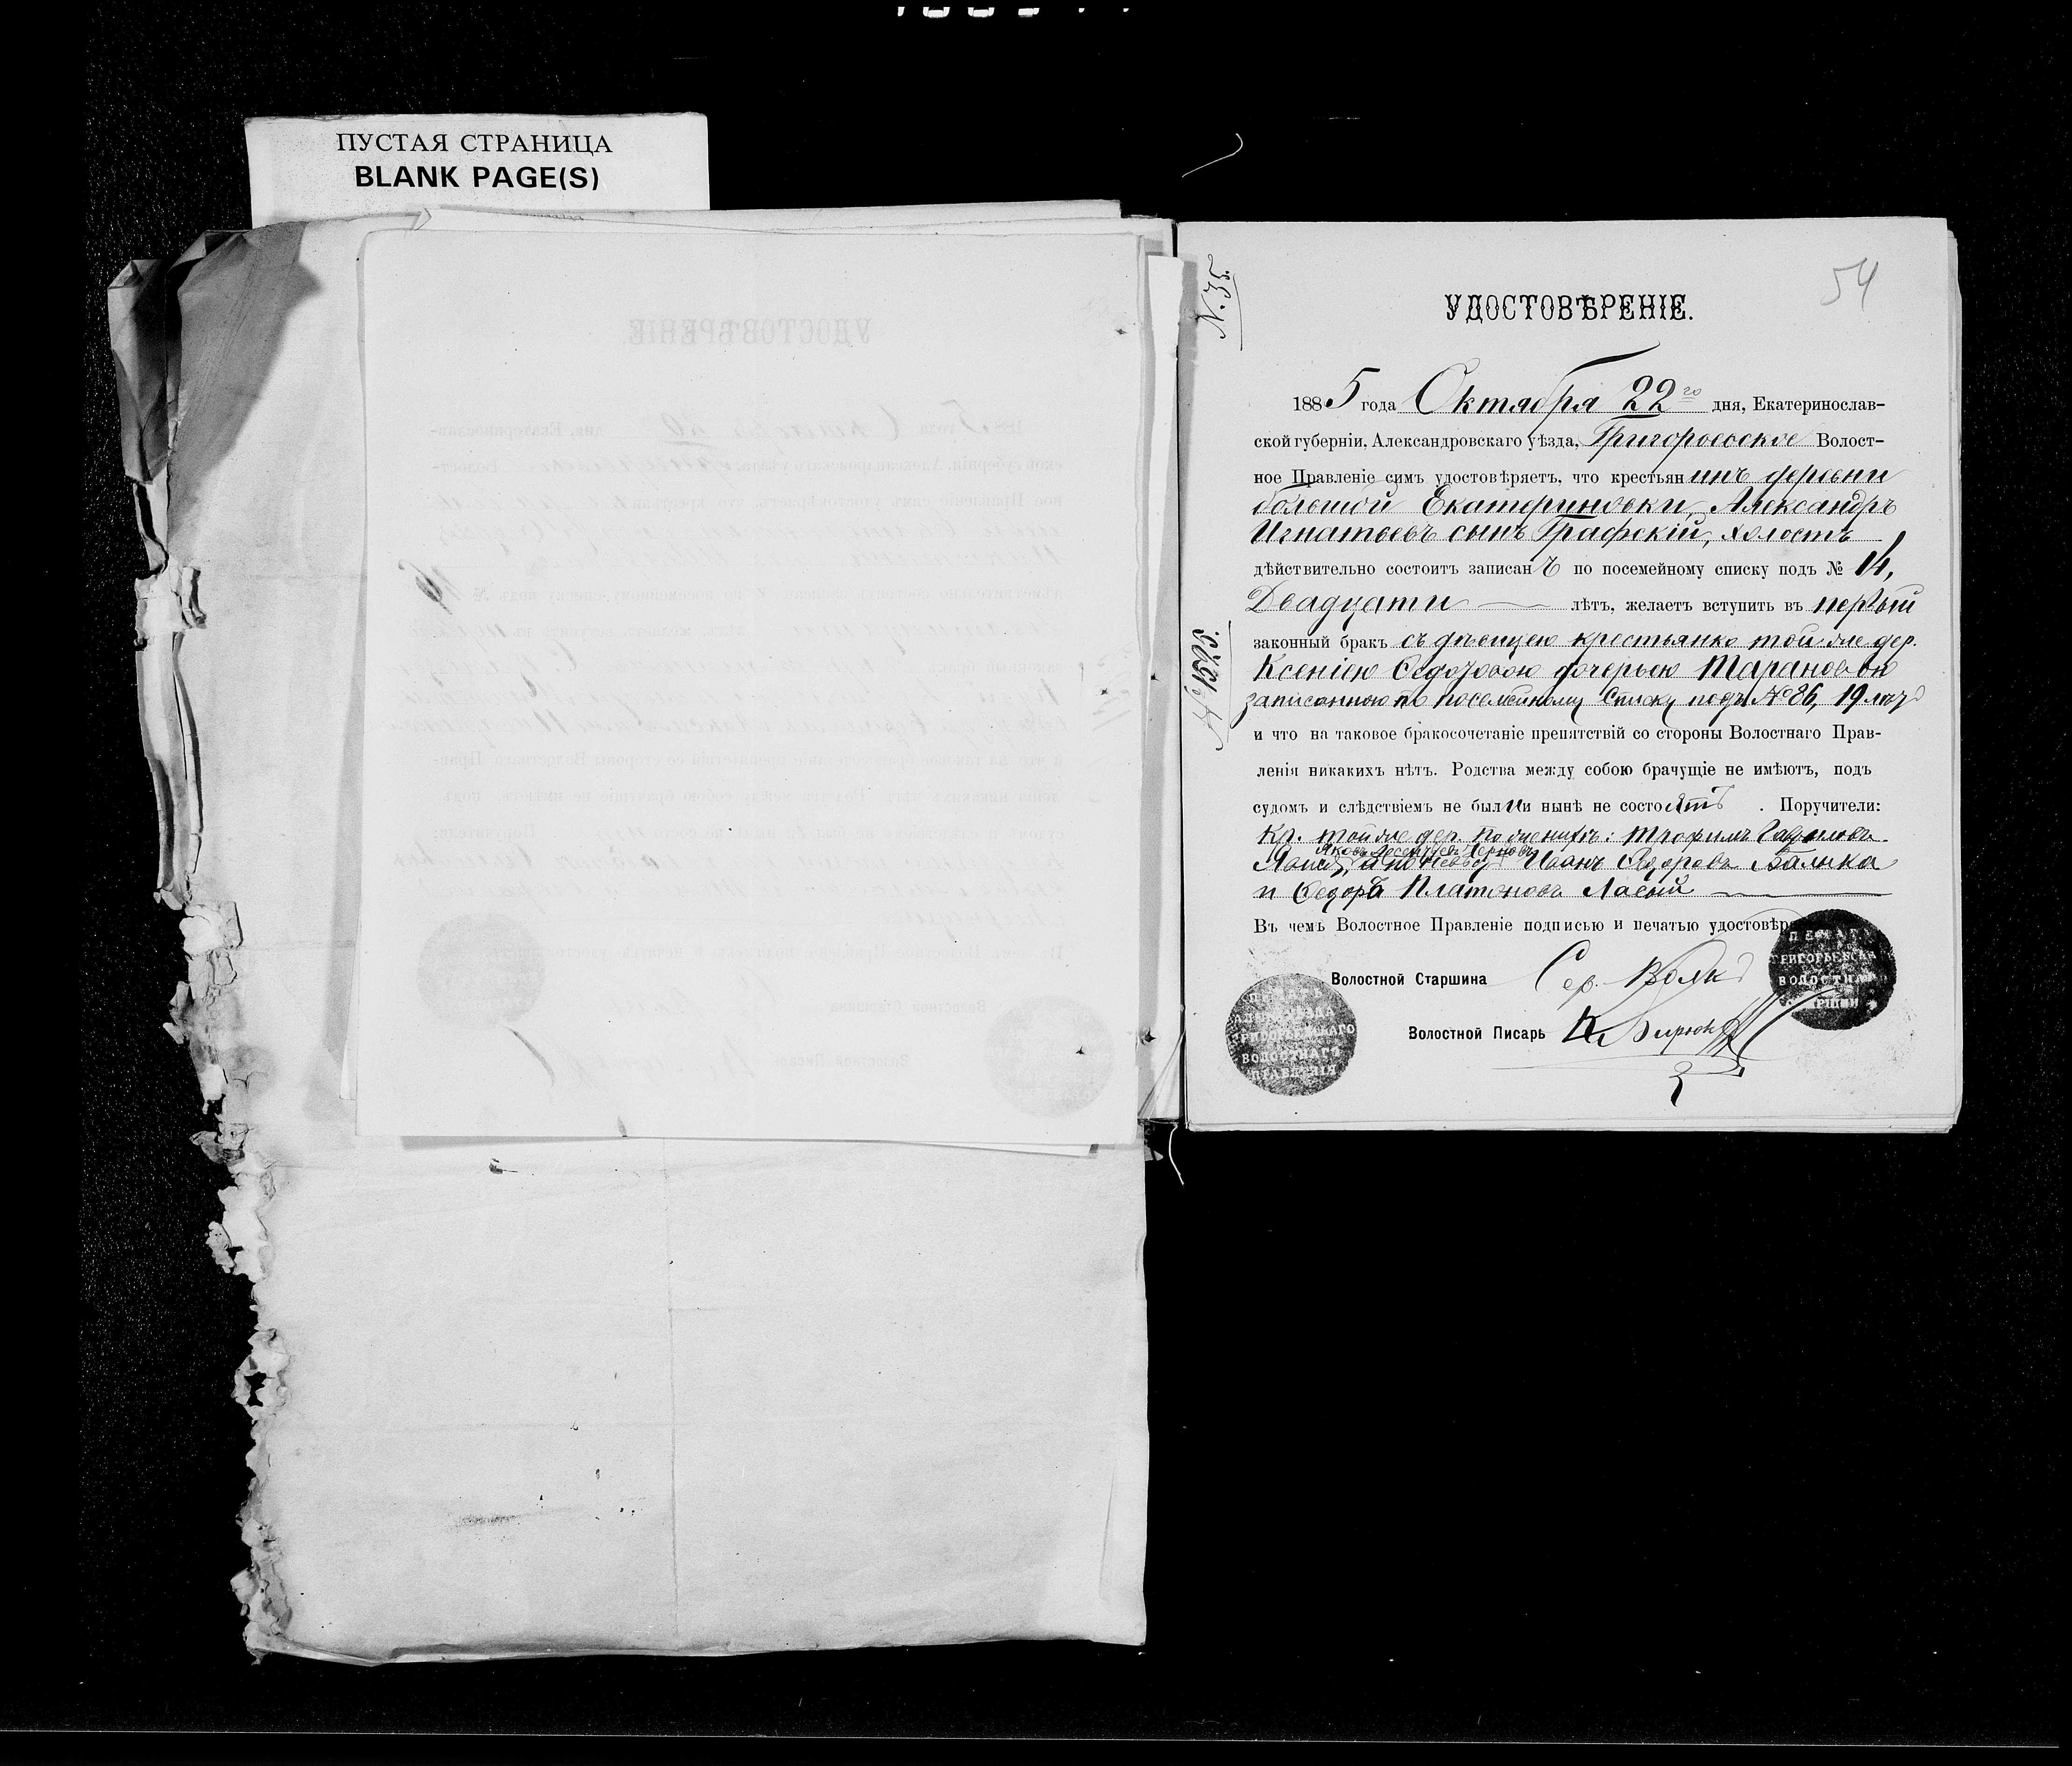 ПУСТАЯ СТРАНИЦА
BLANK PAGE(S)
N. 35.
54
УДОСТОВѢРЕНІЕ.
1885 года Октября 22го дня, Екатеринослав-
ской губерніи, Александровскаго уѣзда, Григорьевское Волост-
ное Правленіе симъ удостовѣряетъ, что крестьянинъ деревни
большой Екатериновки, Александръ
Игнатьевъ сынъ Графскій, холостъ
дѣйствительно состоитъ записанъ по посемейному списку подъ № 14,
Двадцати лѣтъ, желаетъ вступить въ первый
законный бракъ съ дѣвицею крестьянкою той же дер.
Ксеніею Ѳедоровою дочерью Тарановою
записанною по посемейному списку подъ № 86, 19 лѣтъ
и что на таковое бракосочетаніе препятствій со стороны Волостнаго Прав-
ленія никакихъ нѣтъ. Родства между собою брачущіе не имѣютъ, подъ
судомъ и слѣдствіемъ не были и нынѣ не состоятъ. Поручители:
Кр. той же дер. по женихѣ: Трофимъ Гавриловъ
Яковъ
а по невѣстѣ Иванъ Ѳедоровъ Балыка
и Ѳедоръ Платоновъ Ласый
Въ чемъ Волостное Правленіе подписью и печатью удостовѣр
Волостной Старшина Сер. Волкъ
Волостной Писарь
ВОЛОСТНАГО
ПРАВЛЕНІЯ